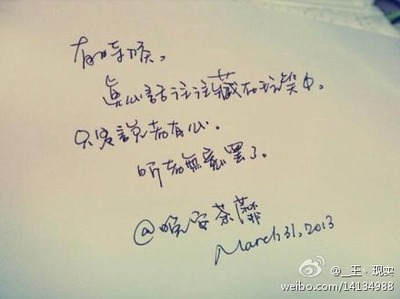 有時候。
真心話往往藏在玩笑中。
只是說者有心。
听者無意罷了。
@晚安茶靡
March 31, 2013
@_王_现实
weibo.com/14134938